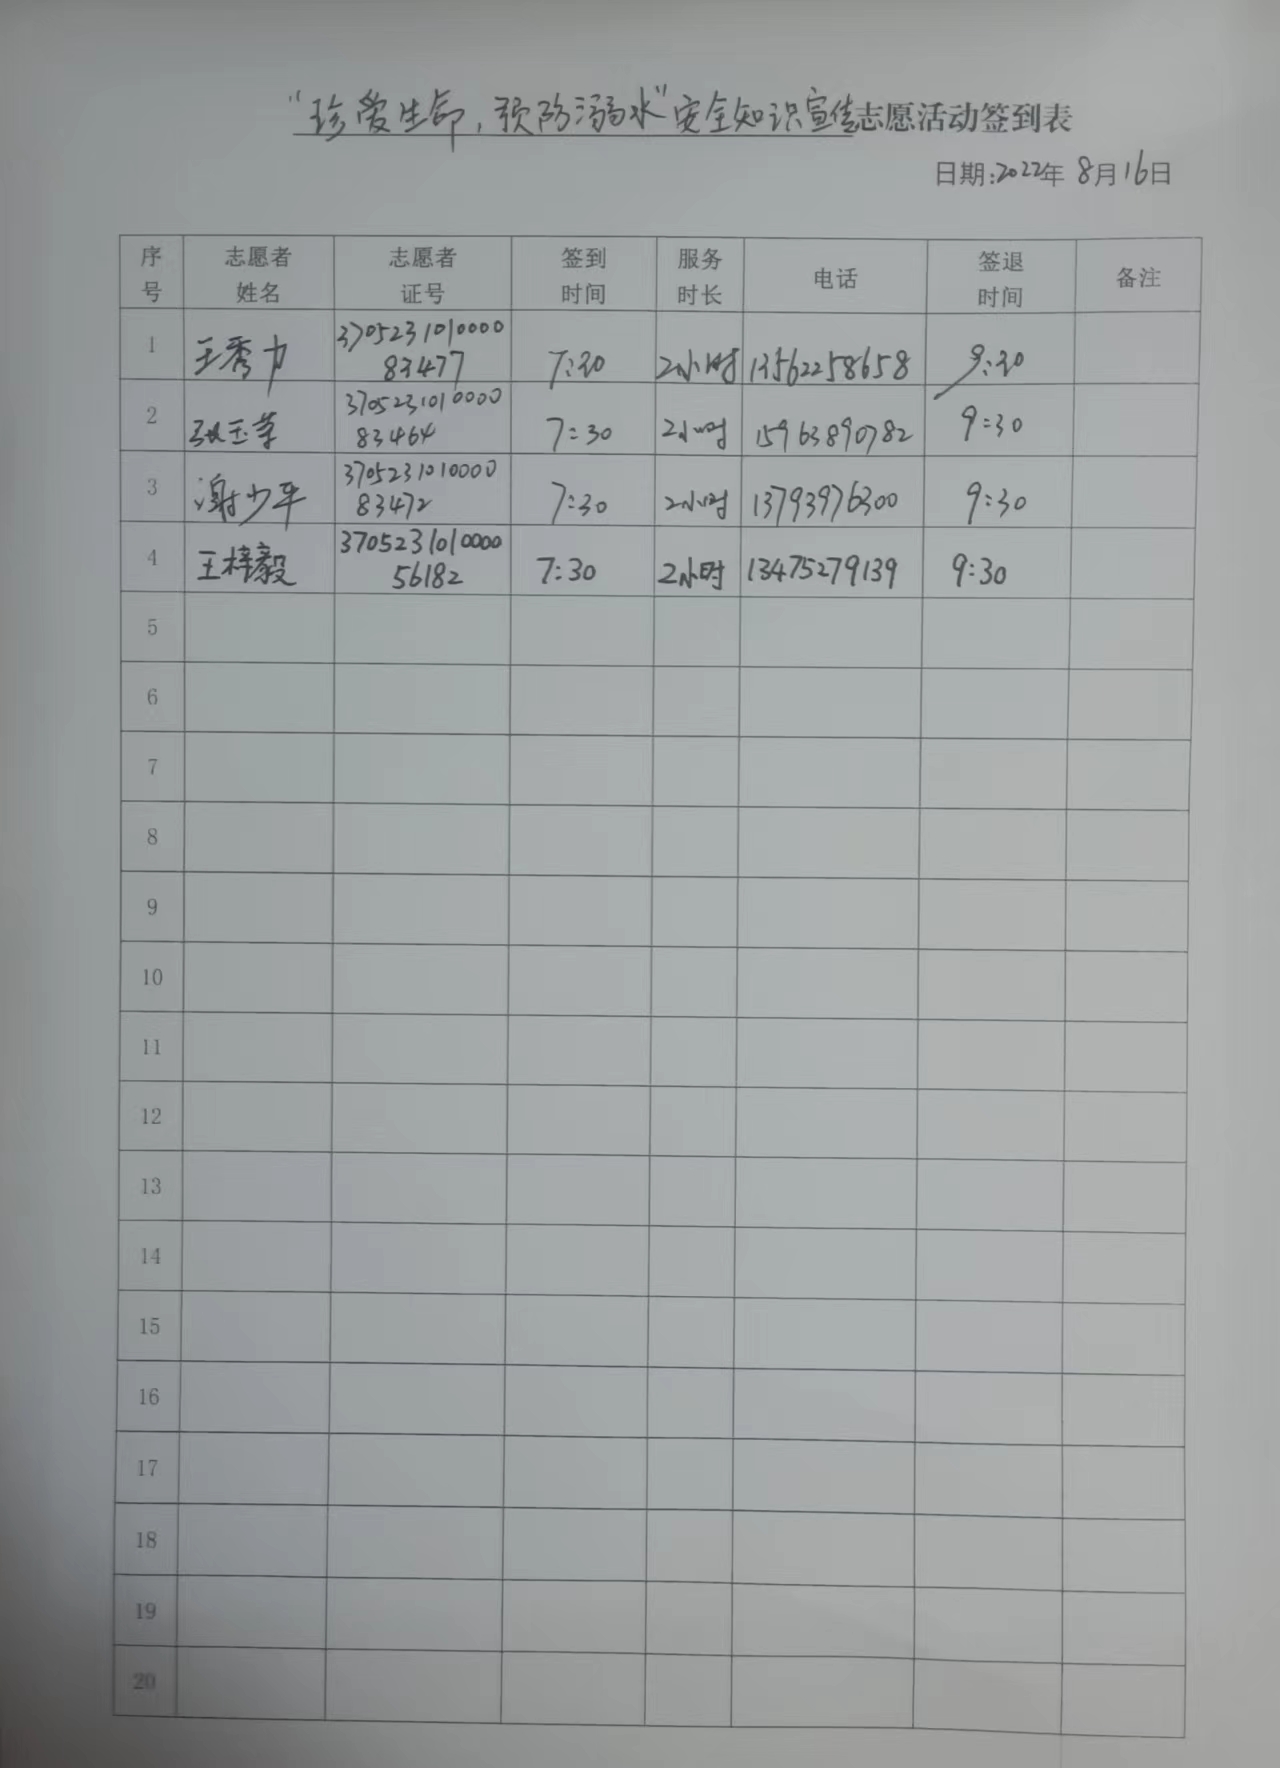 "珍爱生命，预防溺水"安全知识宣传志愿活动签到表
日期:2022年 8月16日
序号 志愿者姓名 志愿者证号 签到时间 服务时长 电话 签退时间 备注
1 王秀力 370523101000083477 7:30 2小时 13562258658 9:30
2 370523101000083464 7:30 2小时 15963890782 9:30
3 谢少平 370523101000083472 7:30 2小时 13793976300 9:30
4 王梓毅 370523101000056182 7:30 2小时 13475279139 9:30
5
6
7
8
9
10
11
12
13
14
15
16
17
18
19
20